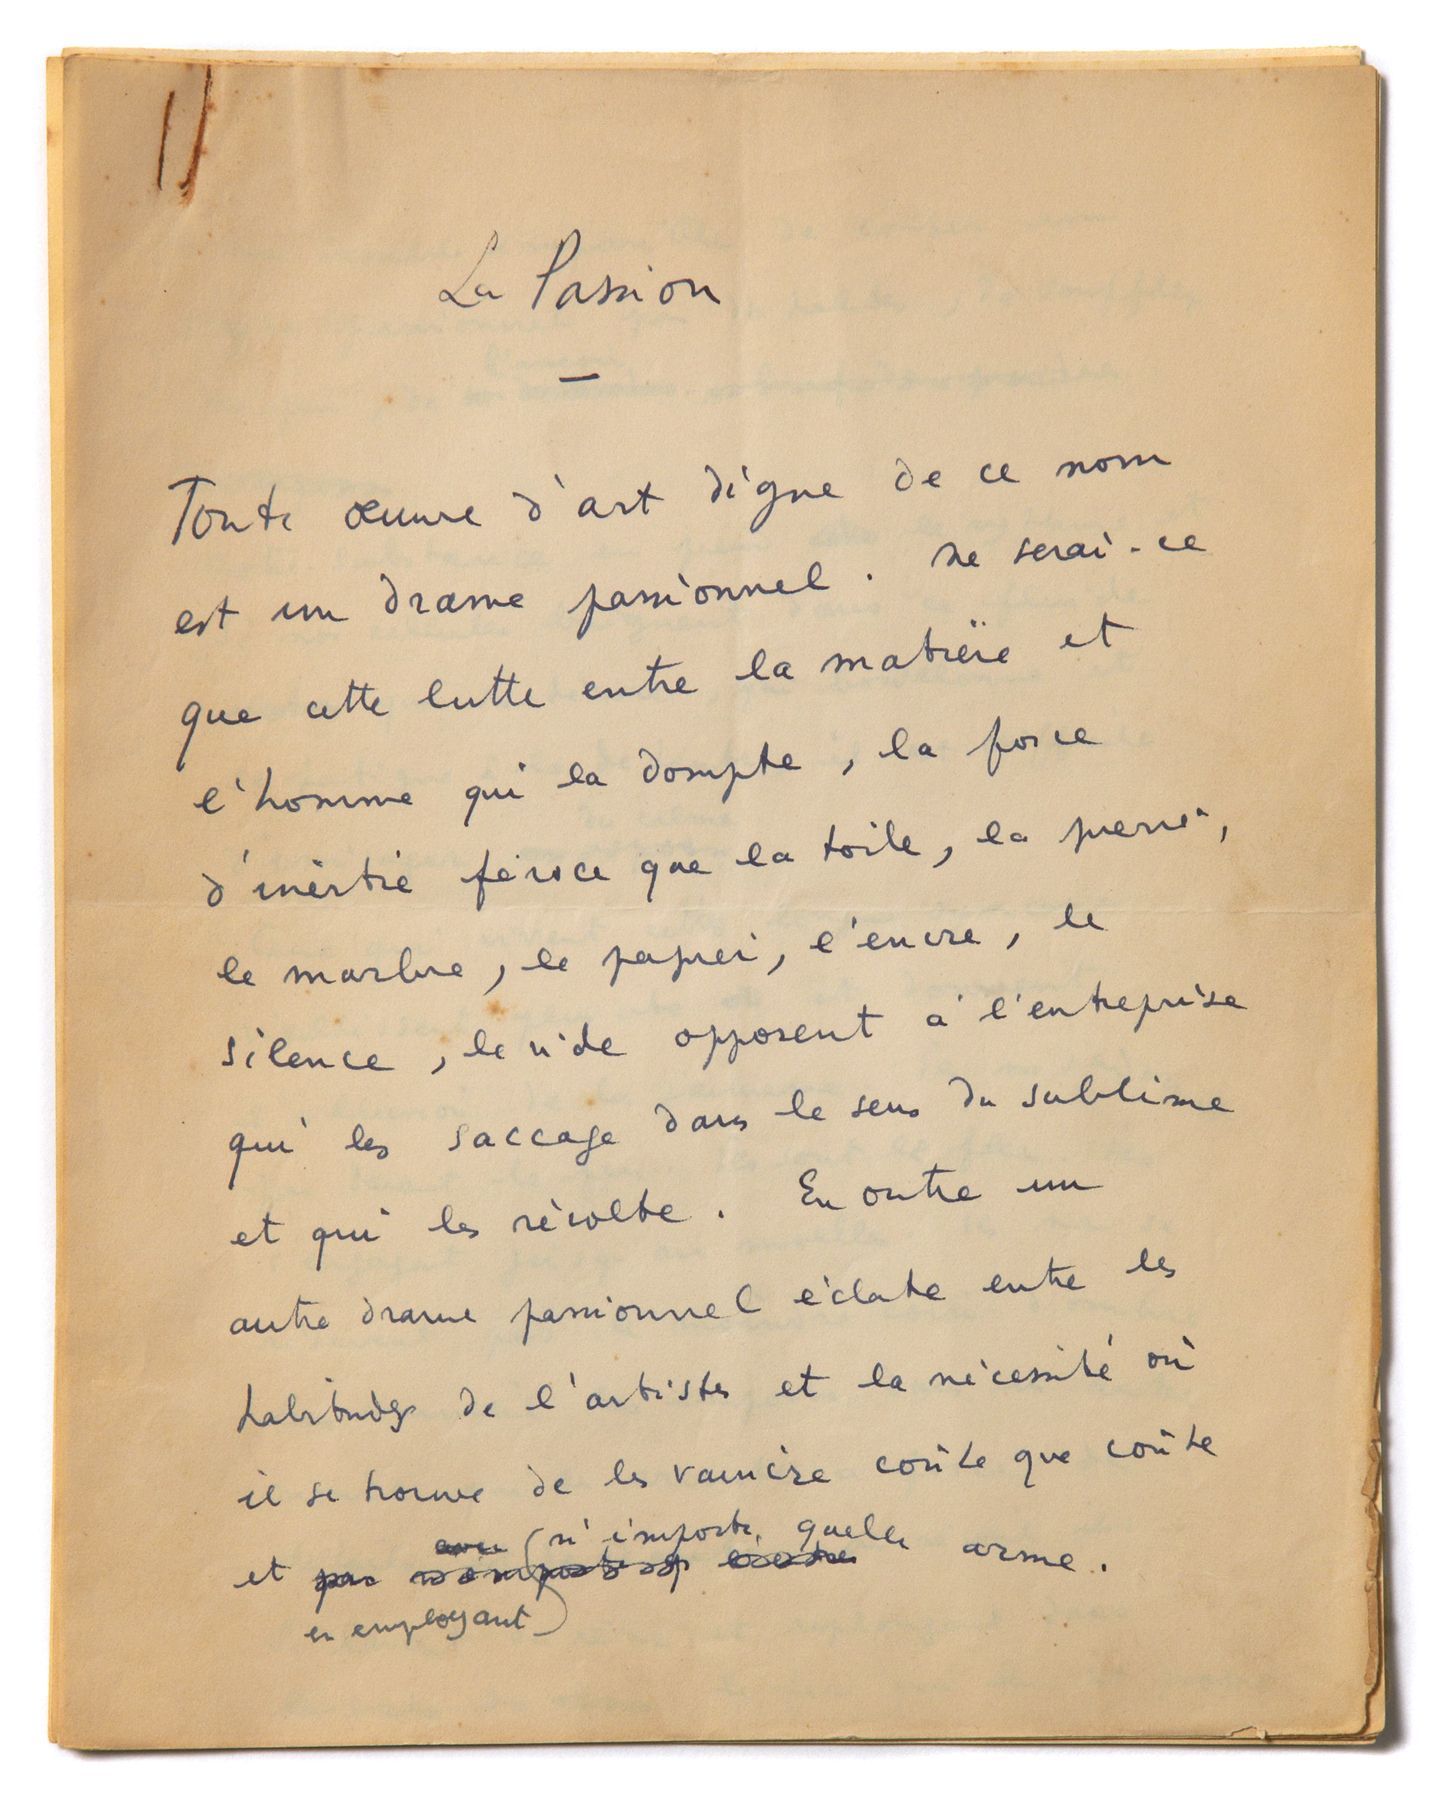 La Passion
Toute œuvre d'art digne de ce nom
est un drame passionnel. Ne serai-ce
que cette lutte entre la matière et
l'homme qui la dompte, la force
d'inertie féroce que la toile, la pierre,
le marbre, le papier, l'encre, le
silence, le vide opposent à l'entreprise
qui les saccage dans le sens du sublime
et qui les révolte. En outre un
autre drame passionnel éclate entre les
habitudes de l'artistes et la nécessité où
il se trouve de les vaincre coûte que coûte
avec n'importe quelle
et par arme.
en employant